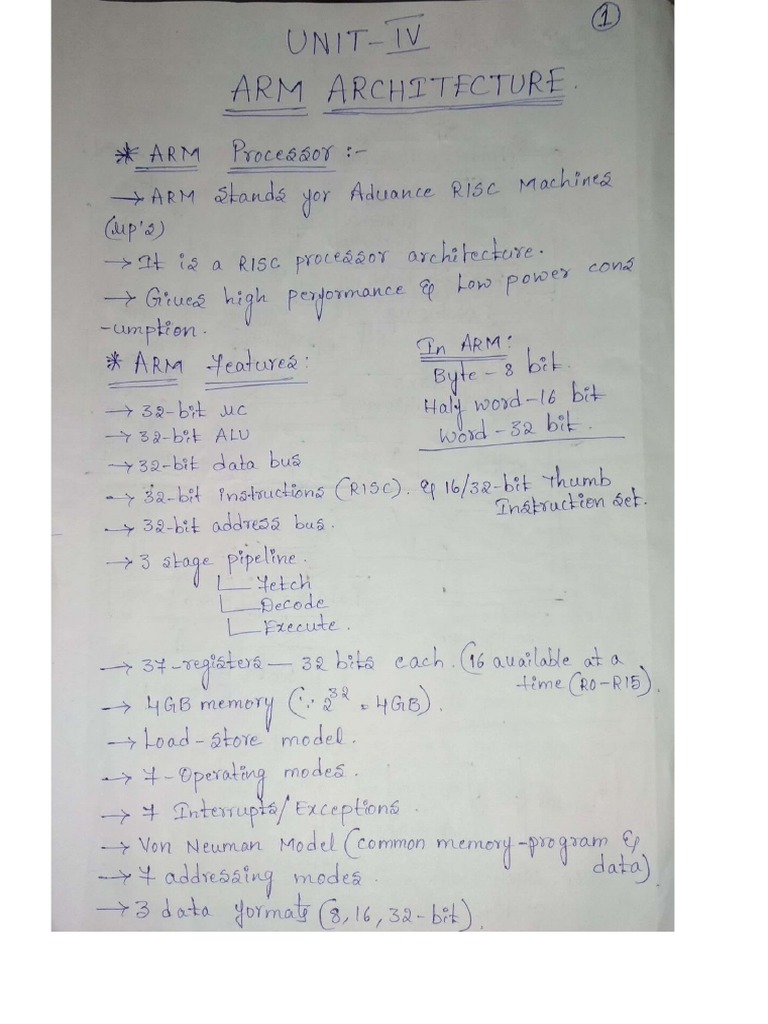 1
UNIT-IV
ARM ARCHITECTURE.
* ARM Processor :-
→ ARM stands for Advance RISC Machines
(μp's)
→ It is a RISC processor architecture.
→ Gives high performance & Low power cons
-umption.
* ARM Features:
→ 32-bit μC
→ 32-bit ALU
→ 32-bit data bus
In ARM:
Byte - 8 bit.
Half word - 16 bit
Word - 32 bit.
→ 32-bit instructions (RISC). & 16/32-bit Thumb
Instruction set.
→ 32-bit address bus.
→ 3 stage pipeline.
Fetch
Decode
Execute.
→ 37-registers — 32 bits each. (16 available at a
time (R0-R15).
→ 4GB memory (∵ 2^32 = 4GB).
→ Load-Store model.
→ 7-Operating modes.
→ 7 Interrupts/Exceptions.
→ Von Neuman Model (common memory-program &
data)
→ 7 addressing modes.
→ 3 data formats (8, 16, 32-bit).